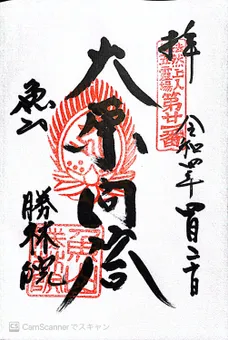 拝
法然上人
二十五霊場
第廿一番
令和四年四月二十日
大原問答
魚山
勝林院
CS CamScanner でスキャン